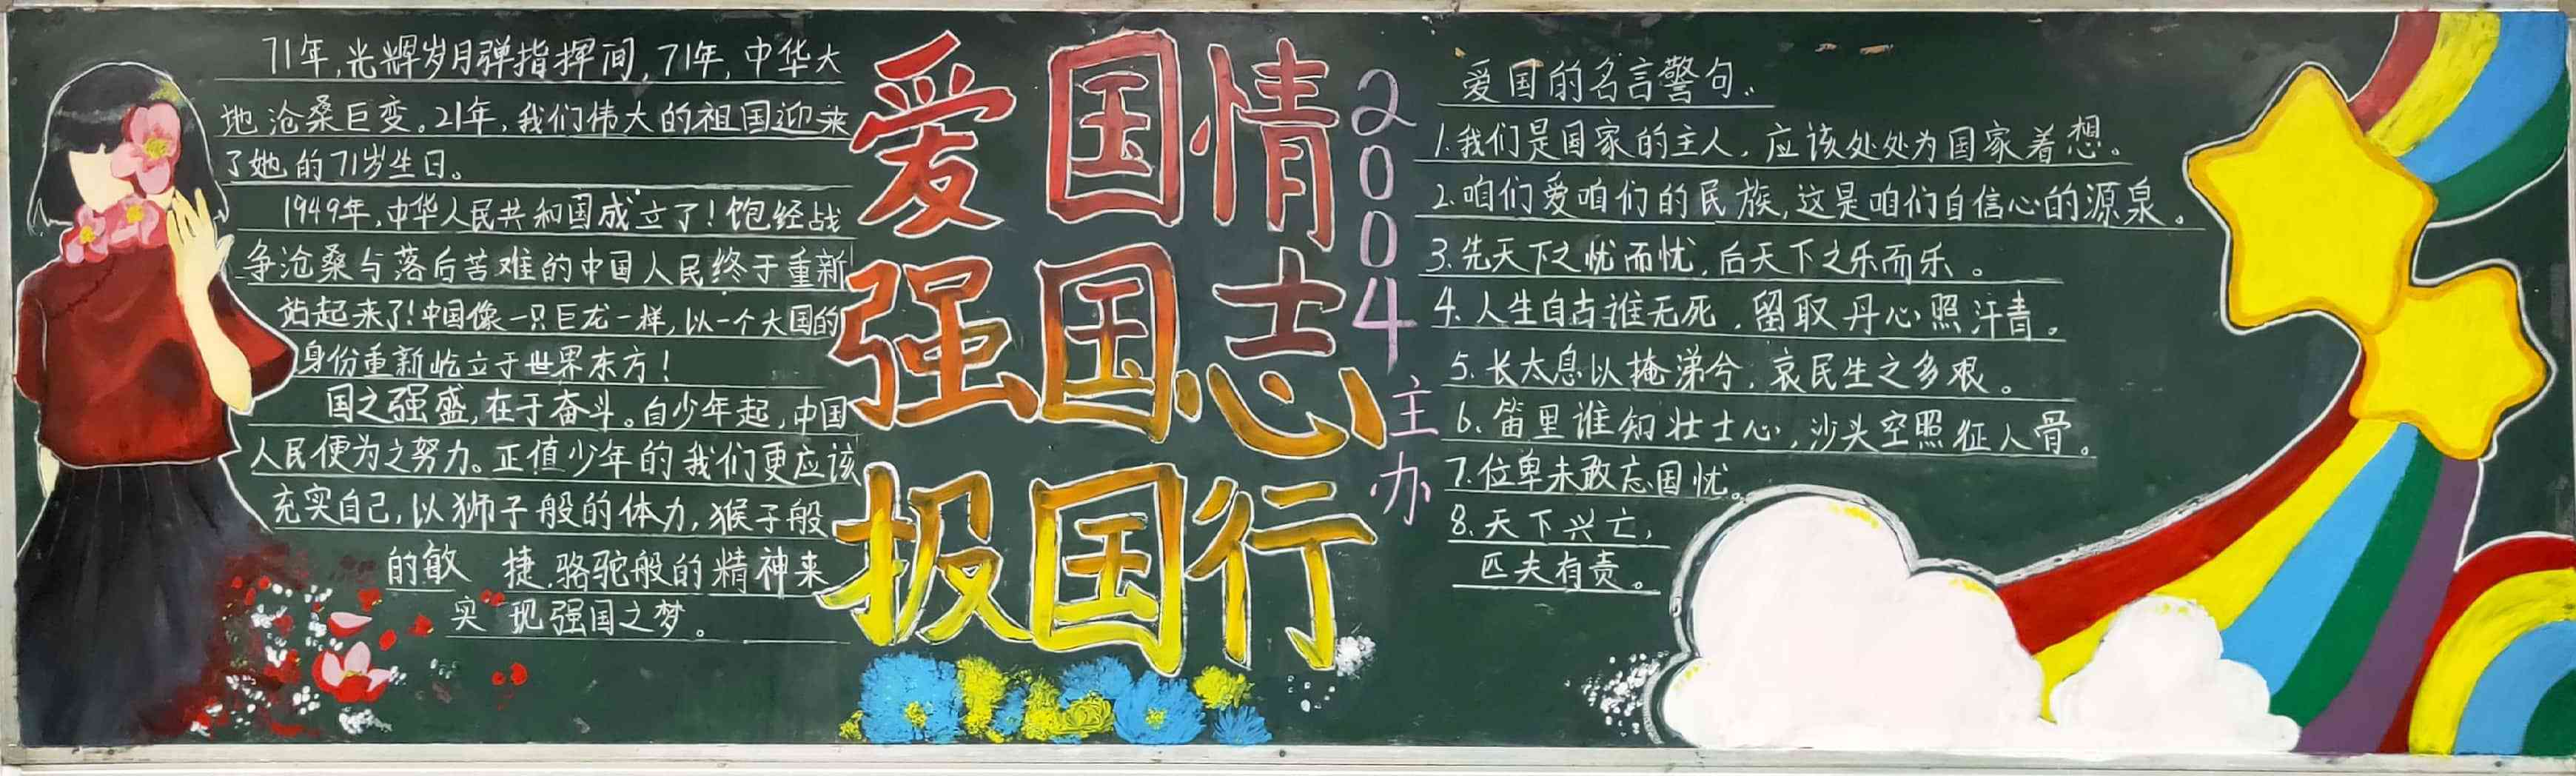 71年,光辉岁月弹指挥间,71年,中华大
地沧桑巨变。21年,我们伟大的祖国迎来
了她的71岁生日。
1949年,中华人民共和国成立了!饱经战
争沧桑与落后苦难的中国人民终于重新
站起来了!中国像一只巨龙一样,以一个大国的
身份重新屹立于世界东方!
国之强盛,在于奋斗。自少年起,中国
人民便为之努力。正值少年的我们更应该
充实自己,以狮子般的体力,猴子般
的敏 捷,骆驼般的精神来
实现强国之梦。
爱国情
强国志
报国行
2004主办
爱国的名言警句..
1.我们是国家的主人,应该处处为国家着想。
2.咱们爱咱们的民族,这是咱们自信心的源泉。
3.先天下之忧而忧,后天下之乐而乐。
4.人生自古谁无死,留取丹心照汗青。
5.长太息以掩涕兮,哀民生之多艰。
6.笛里谁知壮士心,沙头空照征人骨。
7.位卑未敢忘国忧。
8.天下兴亡,
匹夫有责。